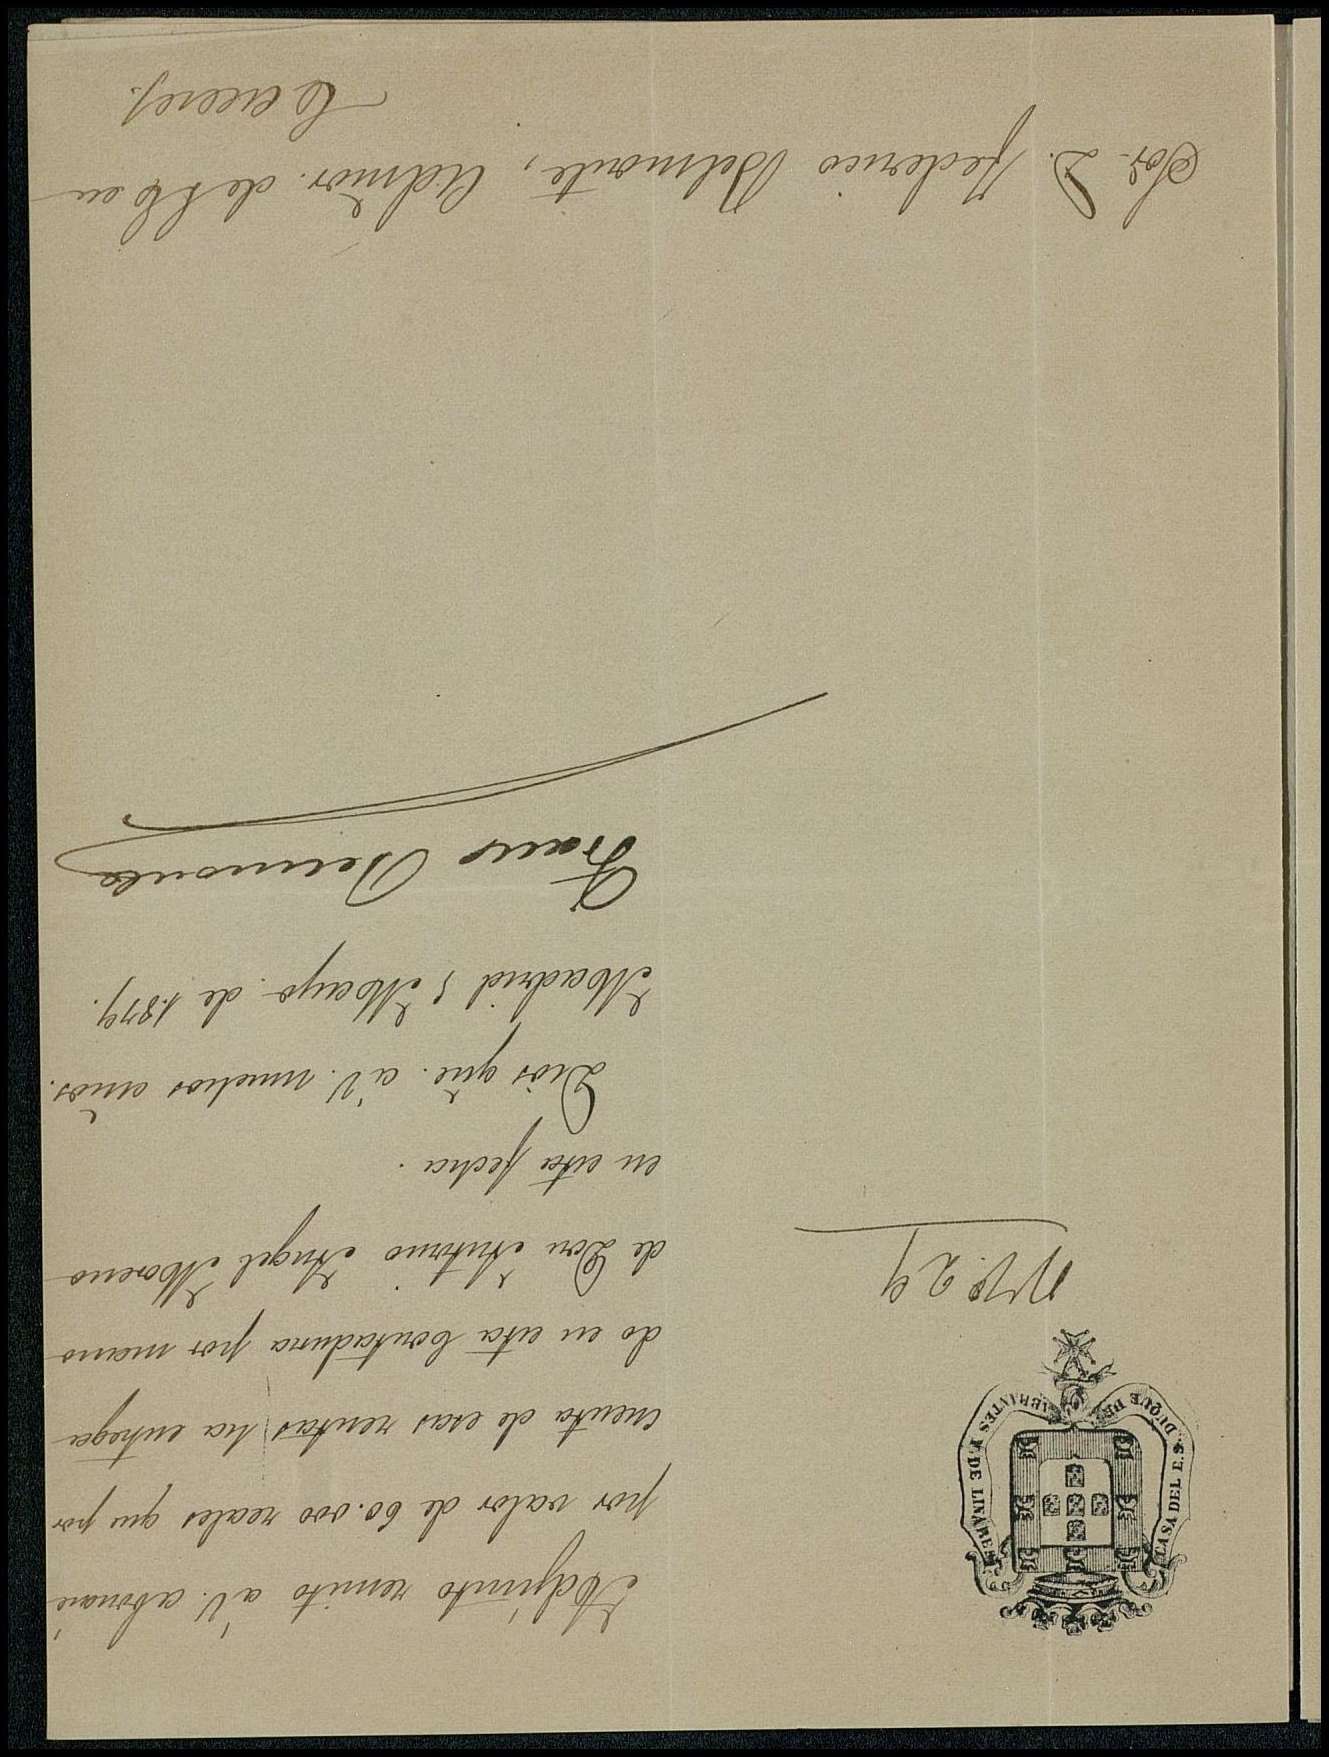 CASA DEL E.S. DUQUE DE ABRANTES Y DE LINARES.
Nº. 29
Adjunto remito á V. abonaré
por valor de 60.000 reales que por
cuenta de esas rentas ha entrega-
do en esta Contaduria por mano
de Don Antonio Angel Moreno
en esta fecha.
Dios gue. á V. muchos años.
Madrid 5 Mayo de 1879.
Franco Belmonte
Sor. D. Federico Belmonte, Admor. de S.E. en
Cáceres.